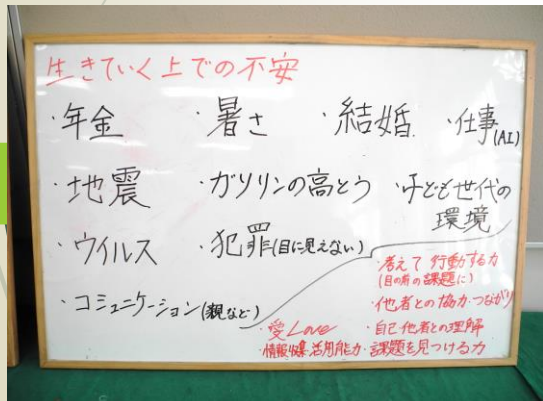 生きていく上での不安
・年金 ・暑さ ・結婚 ・仕事(AI)
・地震 ・ガソリンの高とう ・子ども世代の
環境
・ウイルス ・犯罪(目に見えない)
・コミュニケーション(親など)
・考えて行動する力
(目の前の課題に)
・他者との協力・つながり
・愛Love ・自己他者との理解
・情報収集活用能力 ・課題を見つける力